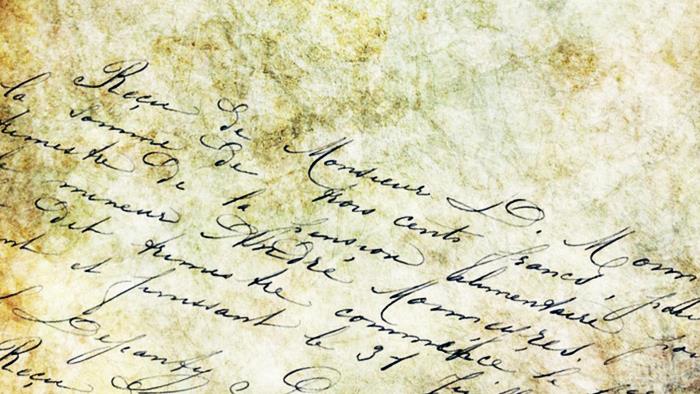 Reçu de Monsieur D. Mom
la somme de trois cents francs, pour
trimestre de la pension alimentaire
le mineur André
dit trimestre commence le
et finissant le 31
Depanty
Reçu